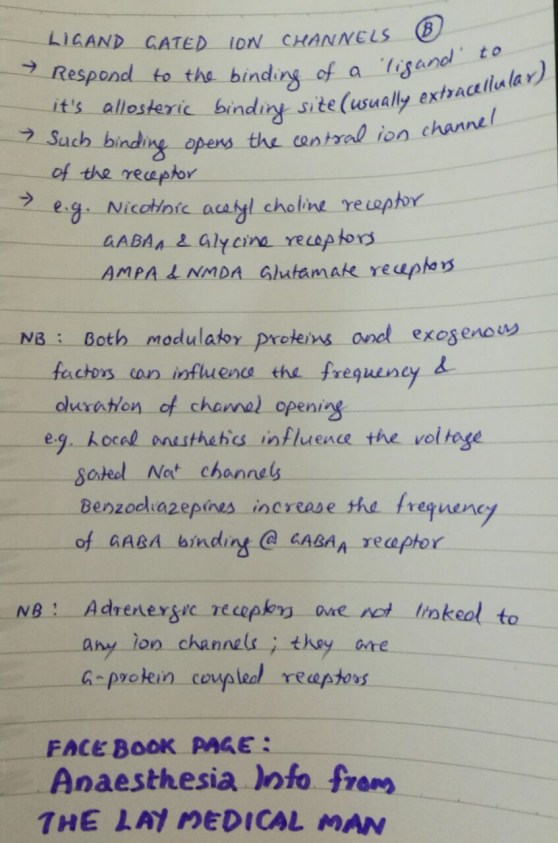 LIGAND GATED ION CHANNELS B
→ Respond to the binding of a 'ligand' to
it's allosteric binding site (usually extracellular)
→ Such binding opens the central ion channel
of the receptor
→ e.g. Nicotinic acetyl choline receptor
GABAA & Glycine receptors
AMPA & NMDA Glutamate receptors
NB : Both modulator proteins and exogenous
factors can influence the frequency &
duration of channel opening
e.g. Local anesthetics influence the voltage
gated Na+ channels
Benzodiazepines increase the frequency
of GABA binding @ GABAA receptor
NB : Adrenergic receptors are not linked to
any ion channels ; they are
G-protein coupled receptors
FACEBOOK PAGE :
Anaesthesia Info from
THE LAY MEDICAL MAN